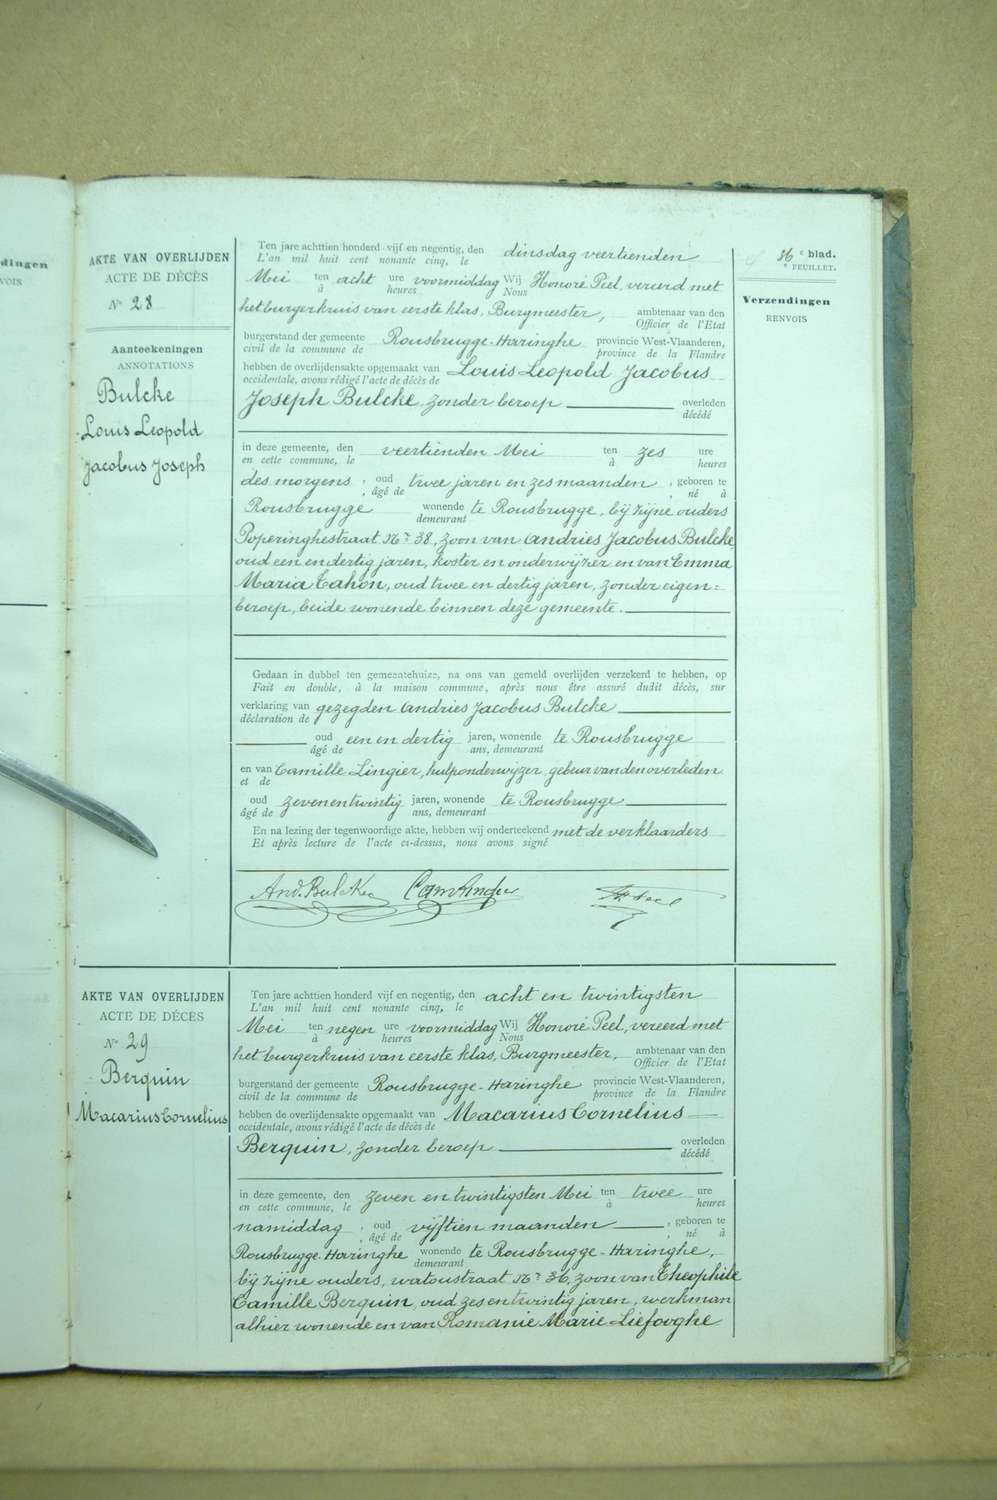 dingen
VOIS
AKTE VAN OVERLIJDEN
ACTE DE DÉCÈS
No 28
Aanteekeningen
ANNOTATIONS
Bulcke
Louis Leopold
Jacobus Joseph
Ten jare achttien honderd vijf en negentig, den dinsdag veertienden
L'an mil huit cent nonante cinq, le
Mei ten acht ure voormiddag Wij Honoré Peel, vereerd met
à heures Nous
het burgerkruis van eerste klas, Burgmeester, ambtenaar van den
Officier de l'Etat
burgerstand der gemeente Rousbrugge-Haringhe provincie West-Vlaanderen,
civil de la commune de province de la Flandre
hebben de overlijdensakte opgemaakt van Louis Leopold Jacobus
occidentale, avons rédigé l'acte de décès de
Joseph Bulcke, zonder beroep overleden
décédé
in deze gemeente, den veertienden Mei ten zes ure
en cette commune, le à heures
des morgens, oud twee jaren en zes maanden, geboren te
, âgé de , né à
Rousbrugge wonende te Rousbrugge, bij zijne ouders
demeurant
Poperinghestraat No 38, zoon van Andries Jacobus Bulcke,
oud een en dertig jaren, koster en onderwijzer en van Emma
Maria Cahon, oud twee en dertig jaren, zonder eigen=
beroep, beide wonende binnen deze gemeente.
Gedaan in dubbel ten gemeentehuize, na ons van gemeld overlijden verzekerd te hebben, op
Fait en double, à la maison commune, après nous être assuré dudit décès, sur
verklaring van gezegden Andries Jacobus Bulcke
déclaration de
oud een en dertig jaren, wonende te Rousbrugge
âgé de ans, demeurant
en van Camille Lingier, hulponderwijzer, gebeur van den overleden
et de
oud zeven en twintig jaren, wonende te Rousbrugge
âgé de ans, demeurant
En na lezing der tegenwoordige akte, hebben wij onderteekend met de verklaarders
Et après lecture de l'acte ci-dessus, nous avons signé
And. Bulcke
86e blad.
e FEUILLET.
Verzendingen
RENVOIS
AKTE VAN OVERLIJDEN
ACTE DE DÉCÈS
No 29
Berquin
Macarius Cornelius
Ten jare achttien honderd vijf en negentig, den acht en twintigsten
L'an mil huit cent nonante cinq, le
Mei ten negen ure voormiddag Wij Honoré Peel, vereerd met
à heures Nous
het burgerkruis van eerste klas, Burgmeester, ambtenaar van den
Officier de l'Etat
burgerstand der gemeente Rousbrugge-Haringhe provincie West-Vlaanderen,
civil de la commune de province de la Flandre
hebben de overlijdensakte opgemaakt van Macarius Cornelius
occidentale, avons rédigé l'acte de décès de
Berquin, zonder beroep overleden
décédé
in deze gemeente, den zeven en twintigsten Mei ten twee ure
en cette commune, le à heures
namiddag, oud vijftien maanden, geboren te
, âgé de , né à
Rousbrugge-Haringhe wonende te Rousbrugge-Haringhe,
demeurant
bij zijne ouders, watoustraat No 36, zoon van Theophile
Camille Berquin, oud zes en twintig jaren, werkman
alhier wonende en van Romanie Marie Liefooghe